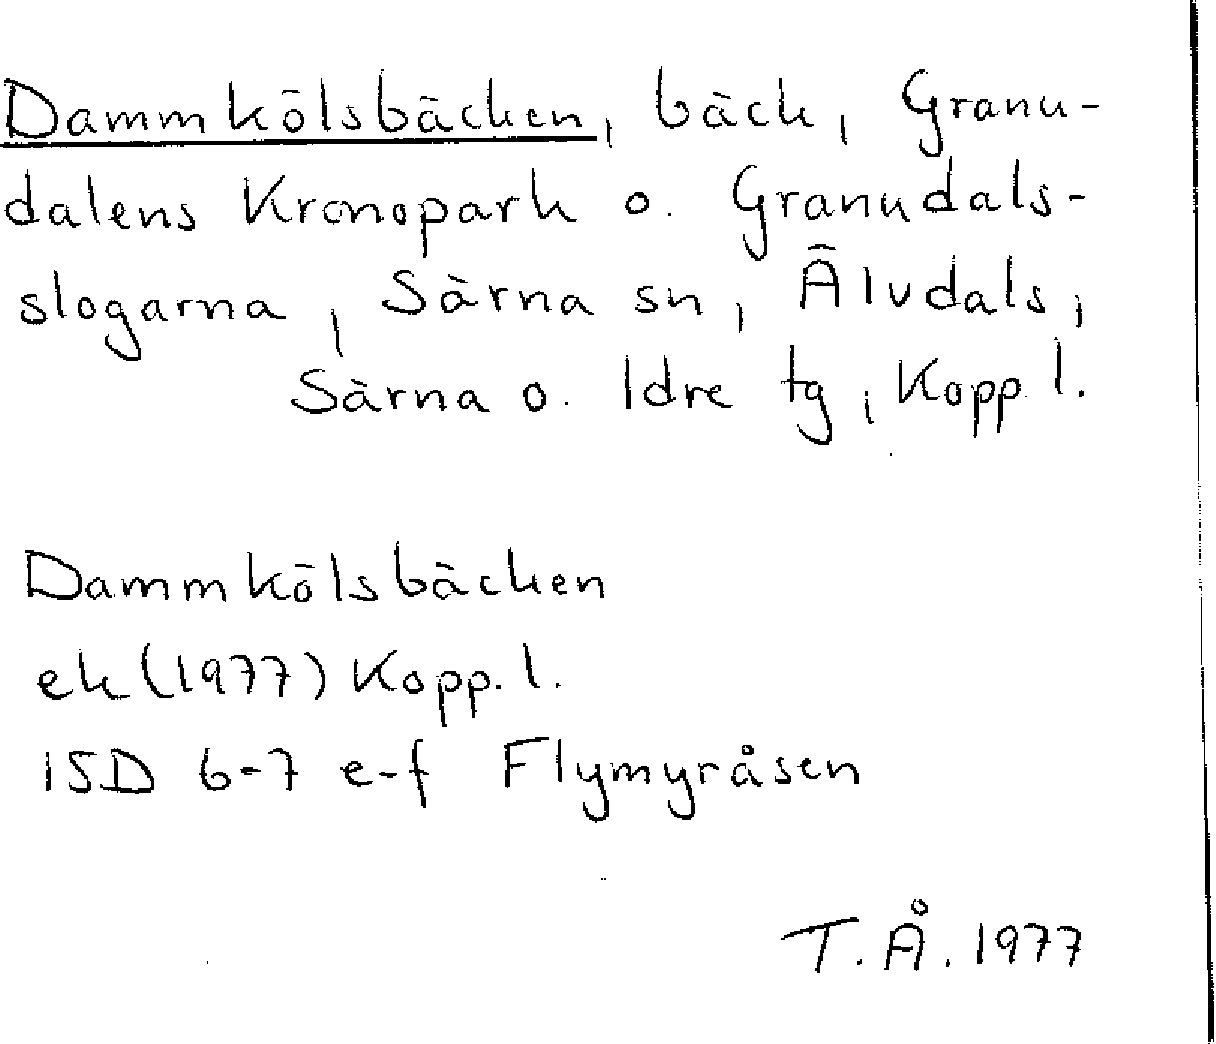 Dammkölsbäcken, bäck, Granu-
dalens Kronopark o. Granudals-
slogarna, Särna sn, Älvdals,
Särna o. Idre tg, Kopp. l.
Dammkölsbäcken
ek (1977) Kopp. l.
15D 6-7 e-f Flymyråsen
T.Å. 1977